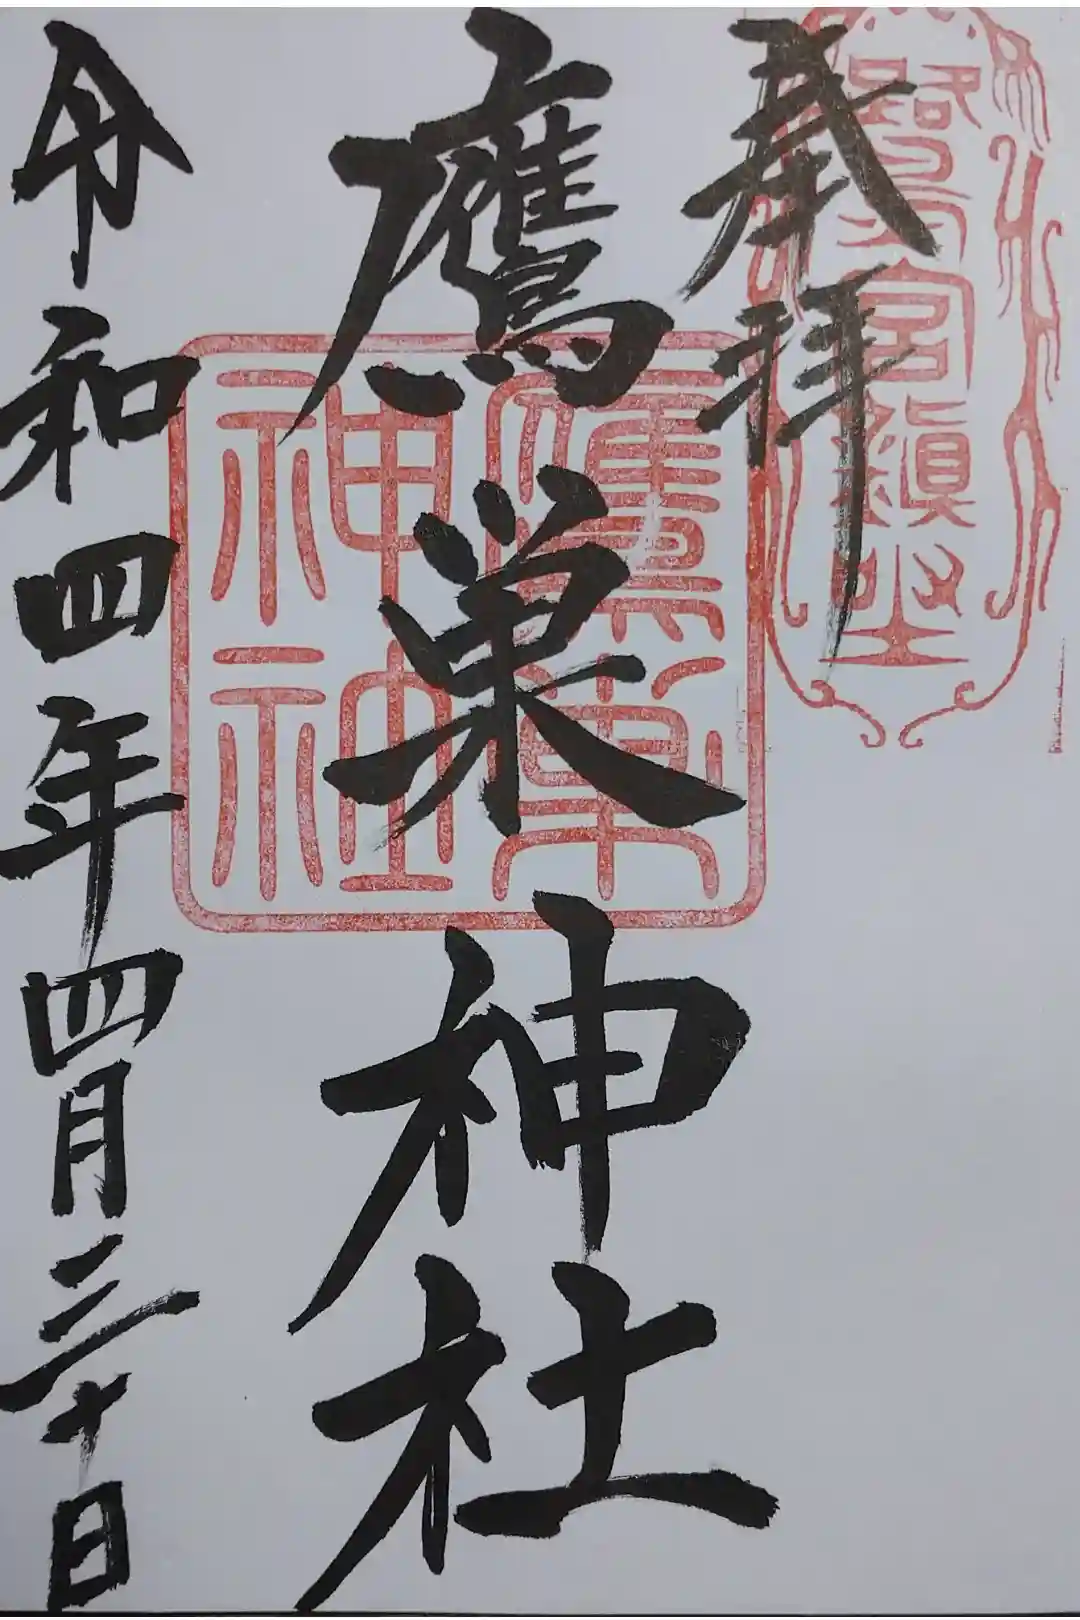 奉拝
鷹巣神社
鷹巣
神社
令和四年四月三十日